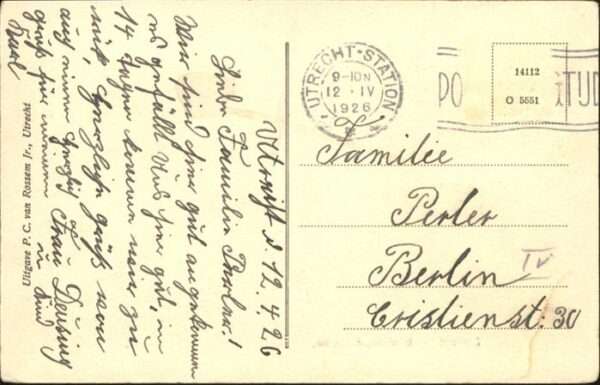 Utrecht d 12.4.26
Liebe Familie Perler!
Wir sind hier gut angekommen
es gefällt Uns hier gut, in
14 Tagen kommen wir zu
rück, Herzliche grüß von
auf
grüß für
Frau Deusing
u Kind
Karl
Uitgave P. C. van Rossem Jr., Utrecht
UTRECHT-STATION
9-10N
12 · IV
1926
PO
GTIJD
14112
O 5551
Familie
Perler
Berlin IV
Cristienst: 30